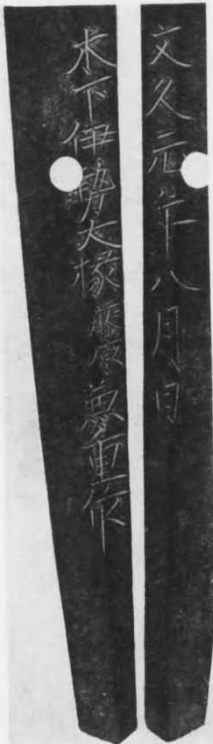 文久元年八月日
木下伊勢大掾藤原重作